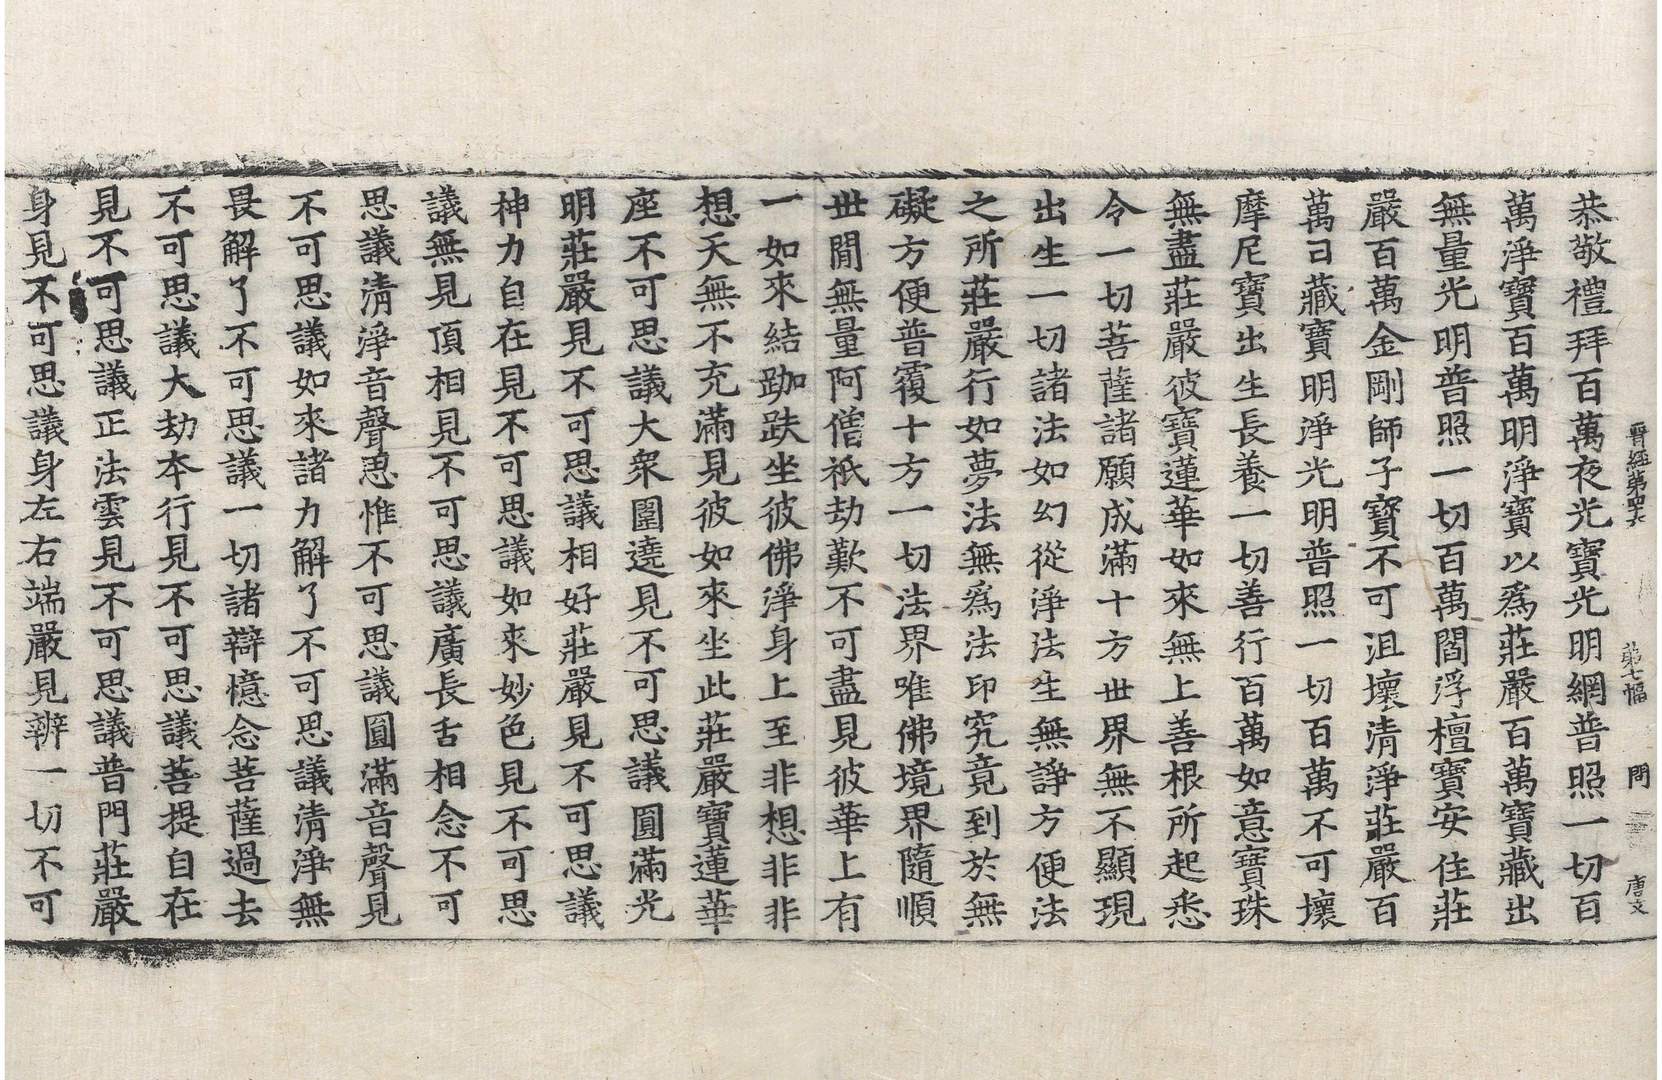 晋經第四六 第七幅 問 唐文
恭敬禮拜百萬夜光寶光明網普照一切百
萬淨寶百萬明淨寶以爲莊嚴百萬寶藏出
無量光明普照一切百萬閻浮檀寶安住莊
嚴百萬金剛師子寶不可沮壞清淨莊嚴百
萬日藏寶明淨光明普照一切百萬不可壞
摩尼寶出生長養一切善行百萬如意寶珠
無盡莊嚴彼寶蓮華如來無上善根所起悉
令一切菩薩諸願成滿十方世界無不顯現
出生一切諸法如幻從淨法生無諍方便法
之所莊嚴行如夢法無爲法印究竟到於無
礙方便普覆十方一切法界唯佛境界隨順
世閒無量阿僧祇劫歎不可盡見彼華上有
一如來結跏趺坐彼佛淨身上至非想非非
想天無不充滿見彼如來坐此莊嚴寶蓮華
座不可思議大衆圍遶見不可思議圓滿光
明莊嚴見不可思議相好莊嚴見不可思議
神力自在見不可思議如來妙色見不可思
議無見頂相見不可思議廣長舌相念不可
思議清淨音聲思惟不可思議圓滿音聲見
不可思議如來諸力解了不可思議清淨無
畏解了不可思議一切諸辯憶念菩薩過去
不可思議大劫本行見不可思議菩提自在
見不可思議正法雲見不可思議普門莊嚴
身見不可思議身左右端嚴見辨一切不可